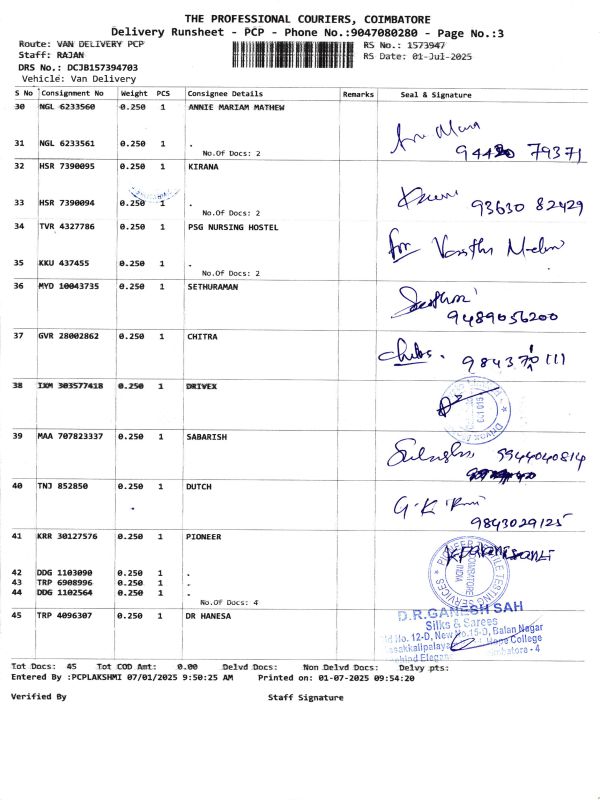 THE PROFESSIONAL COURIERS, COIMBATORE
Delivery Runsheet - PCP - Phone No.:9047080280 - Page No.:3
Route: VAN DELIVERY PCP RS No.: 1573947
Staff: RAJAN RS Date: 01-Jul-2025
DRS No.: DCJB157394703
Vehicle: Van Delivery
S No Consignment No Weight PCS Consignee Details Remarks Seal & Signature
30 NGL 6233560 0.250 1 ANNIE MARIAM MATHEW
31 NGL 6233561 0.250 1 .
No.Of Docs: 2
79371
32 HSR 7390095 0.250 1 KIRANA
33 HSR 7390094 0.250 1 .
93630 82429
No.Of Docs: 2
34 TVR 4327786 0.250 1 PSG NURSING HOSTEL
for
35 KKU 437455 0.250 1 .
No.Of Docs: 2
36 MYD 10043735 0.250 1 SETHURAMAN
9489056200
37 GVR 28002862 0.250 1 CHITRA
Chitra.
38 IXM 303577418 0.250 1 DRIVEX
39 MAA 707823337 0.250 1 SABARISH
9944040814
40 TNJ 852850 0.250 1 DUTCH
9843029125
41 KRR 30127576 0.250 1 PIONEER
PIONEER TEXTILE TESTING SERVICES
COIMBATORE
INDIA
42 DDG 1103090 0.250 1 .
43 TRP 6908996 0.250 1 .
44 DDG 1102564 0.250 1 .
No.Of Docs: 4
45 TRP 4096307 0.250 1 DR HANESA
D.R.GANESH SAH
Silks & Sarees
No. 12-D, New No.15-D, Balan Nagar
Hope College
- 4
Tot Docs: 45 Tot COD Amt: 0.00 Delvd Docs: Non Delvd Docs: Delvy pts:
Entered By :PCPLAKSHMI 07/01/2025 9:50:25 AM Printed on: 01-07-2025 09:54:20
Verified By Staff Signature